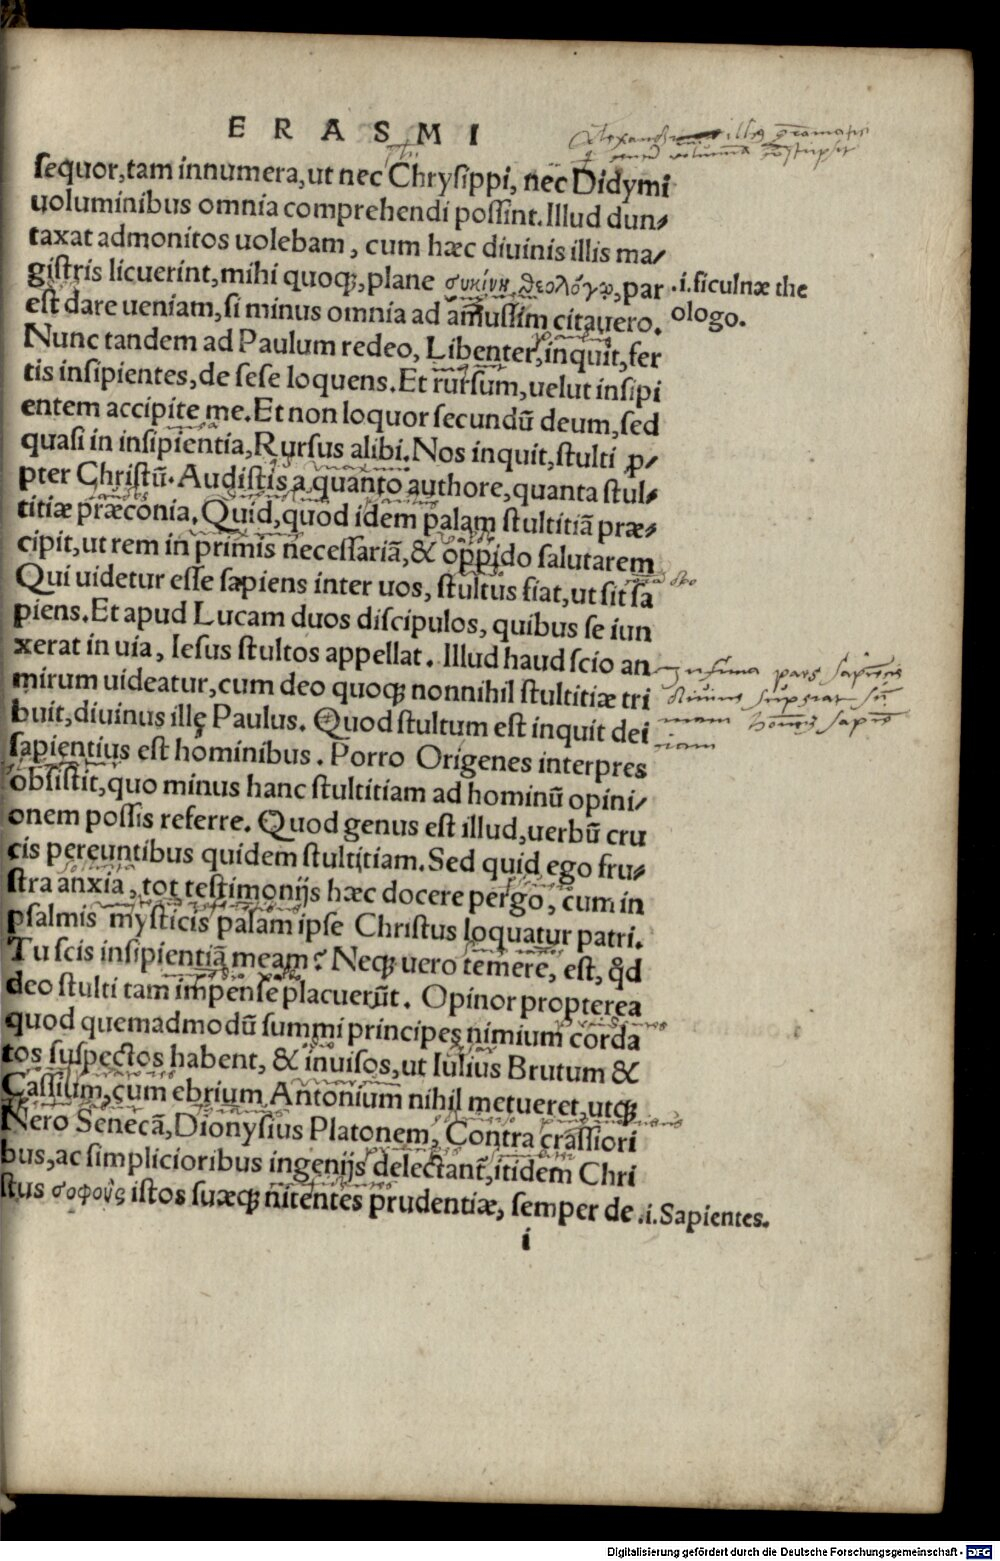 ERASMI
sequor,tam innumera,ut nec Chrysippi, nec Didymi
uoluminibus omnia comprehendi possint.Illud dun⸗
taxat admonitos uolebam, cum hæc diuinis illis ma⸗
gistris licuerint,mihi quoqꝫ,plane συκίνῃ θεολόγῳ,par .i.ficulnæ the
est dare ueniam,si minus omnia ad amussim citauero. ologo.
Nunc tandem ad Paulum redeo, Libenter,inquit,fer
tis insipientes,de sese loquens.Et rursum,uelut insipi
entem accipite me.Et non loquor secundū deum,sed
quasi in insipientia,Rursus alibi.Nos inquit,stulti ꝓ⸗
pter Christū. Audistis a quanto authore,quanta stul⸗
titiæ præconia.Quid,quod idem palam stultitiā præ⸗
cipit,ut rem in primis necessariā,& oppido salutarem
Qui uidetur esse sapiens inter uos, stultus fiat,ut sit sa
piens.Et apud Lucam duos discipulos, quibus se iun
xerat in uia, Iesus stultos appellat. Illud haud scio an
mirum uideatur,cum deo quoqꝫ nonnihil stultitiæ tri
buit,diuinus ille Paulus. Quod stultum est inquit dei
sapientius est hominibus. Porro Origenes interpres
obsistit,quo minus hanc stultitiam ad hominū opini⸗
onem possis referre. Quod genus est illud,uerbū cru
cis pereuntibus quidem stultitiam.Sed quid ego fru⸗
stra anxia, tot testimonijs hæc docere pergo, cum in
psalmis mysticis palam ipse Christus loquatur patri.
Tu scis insipientiā meam? Neqꝫ uero temere, est, qd̊
deo stulti tam impense placuerūt. Opinor propterea
quod quemadmodū summi principes nimium corda
tos suspectos habent, & inuisos,ut Iulius Brutum &
Cassium,cum ebrium Antonium nihil metueret,utqꝫ
Nero Senecā,Dionysius Platonem, Contra crassiori
bus,ac simplicioribus ingenijs delectant᷑,itidem Chri
stus σοφοὺς istos suæqꝫ nitentes prudentiæ, semper de .i.Sapientes.
i
Infima pars sapientie
diuine superat
Digitalisierung gefördert durch die Deutsche Forschungsgemeinschaft - DFG